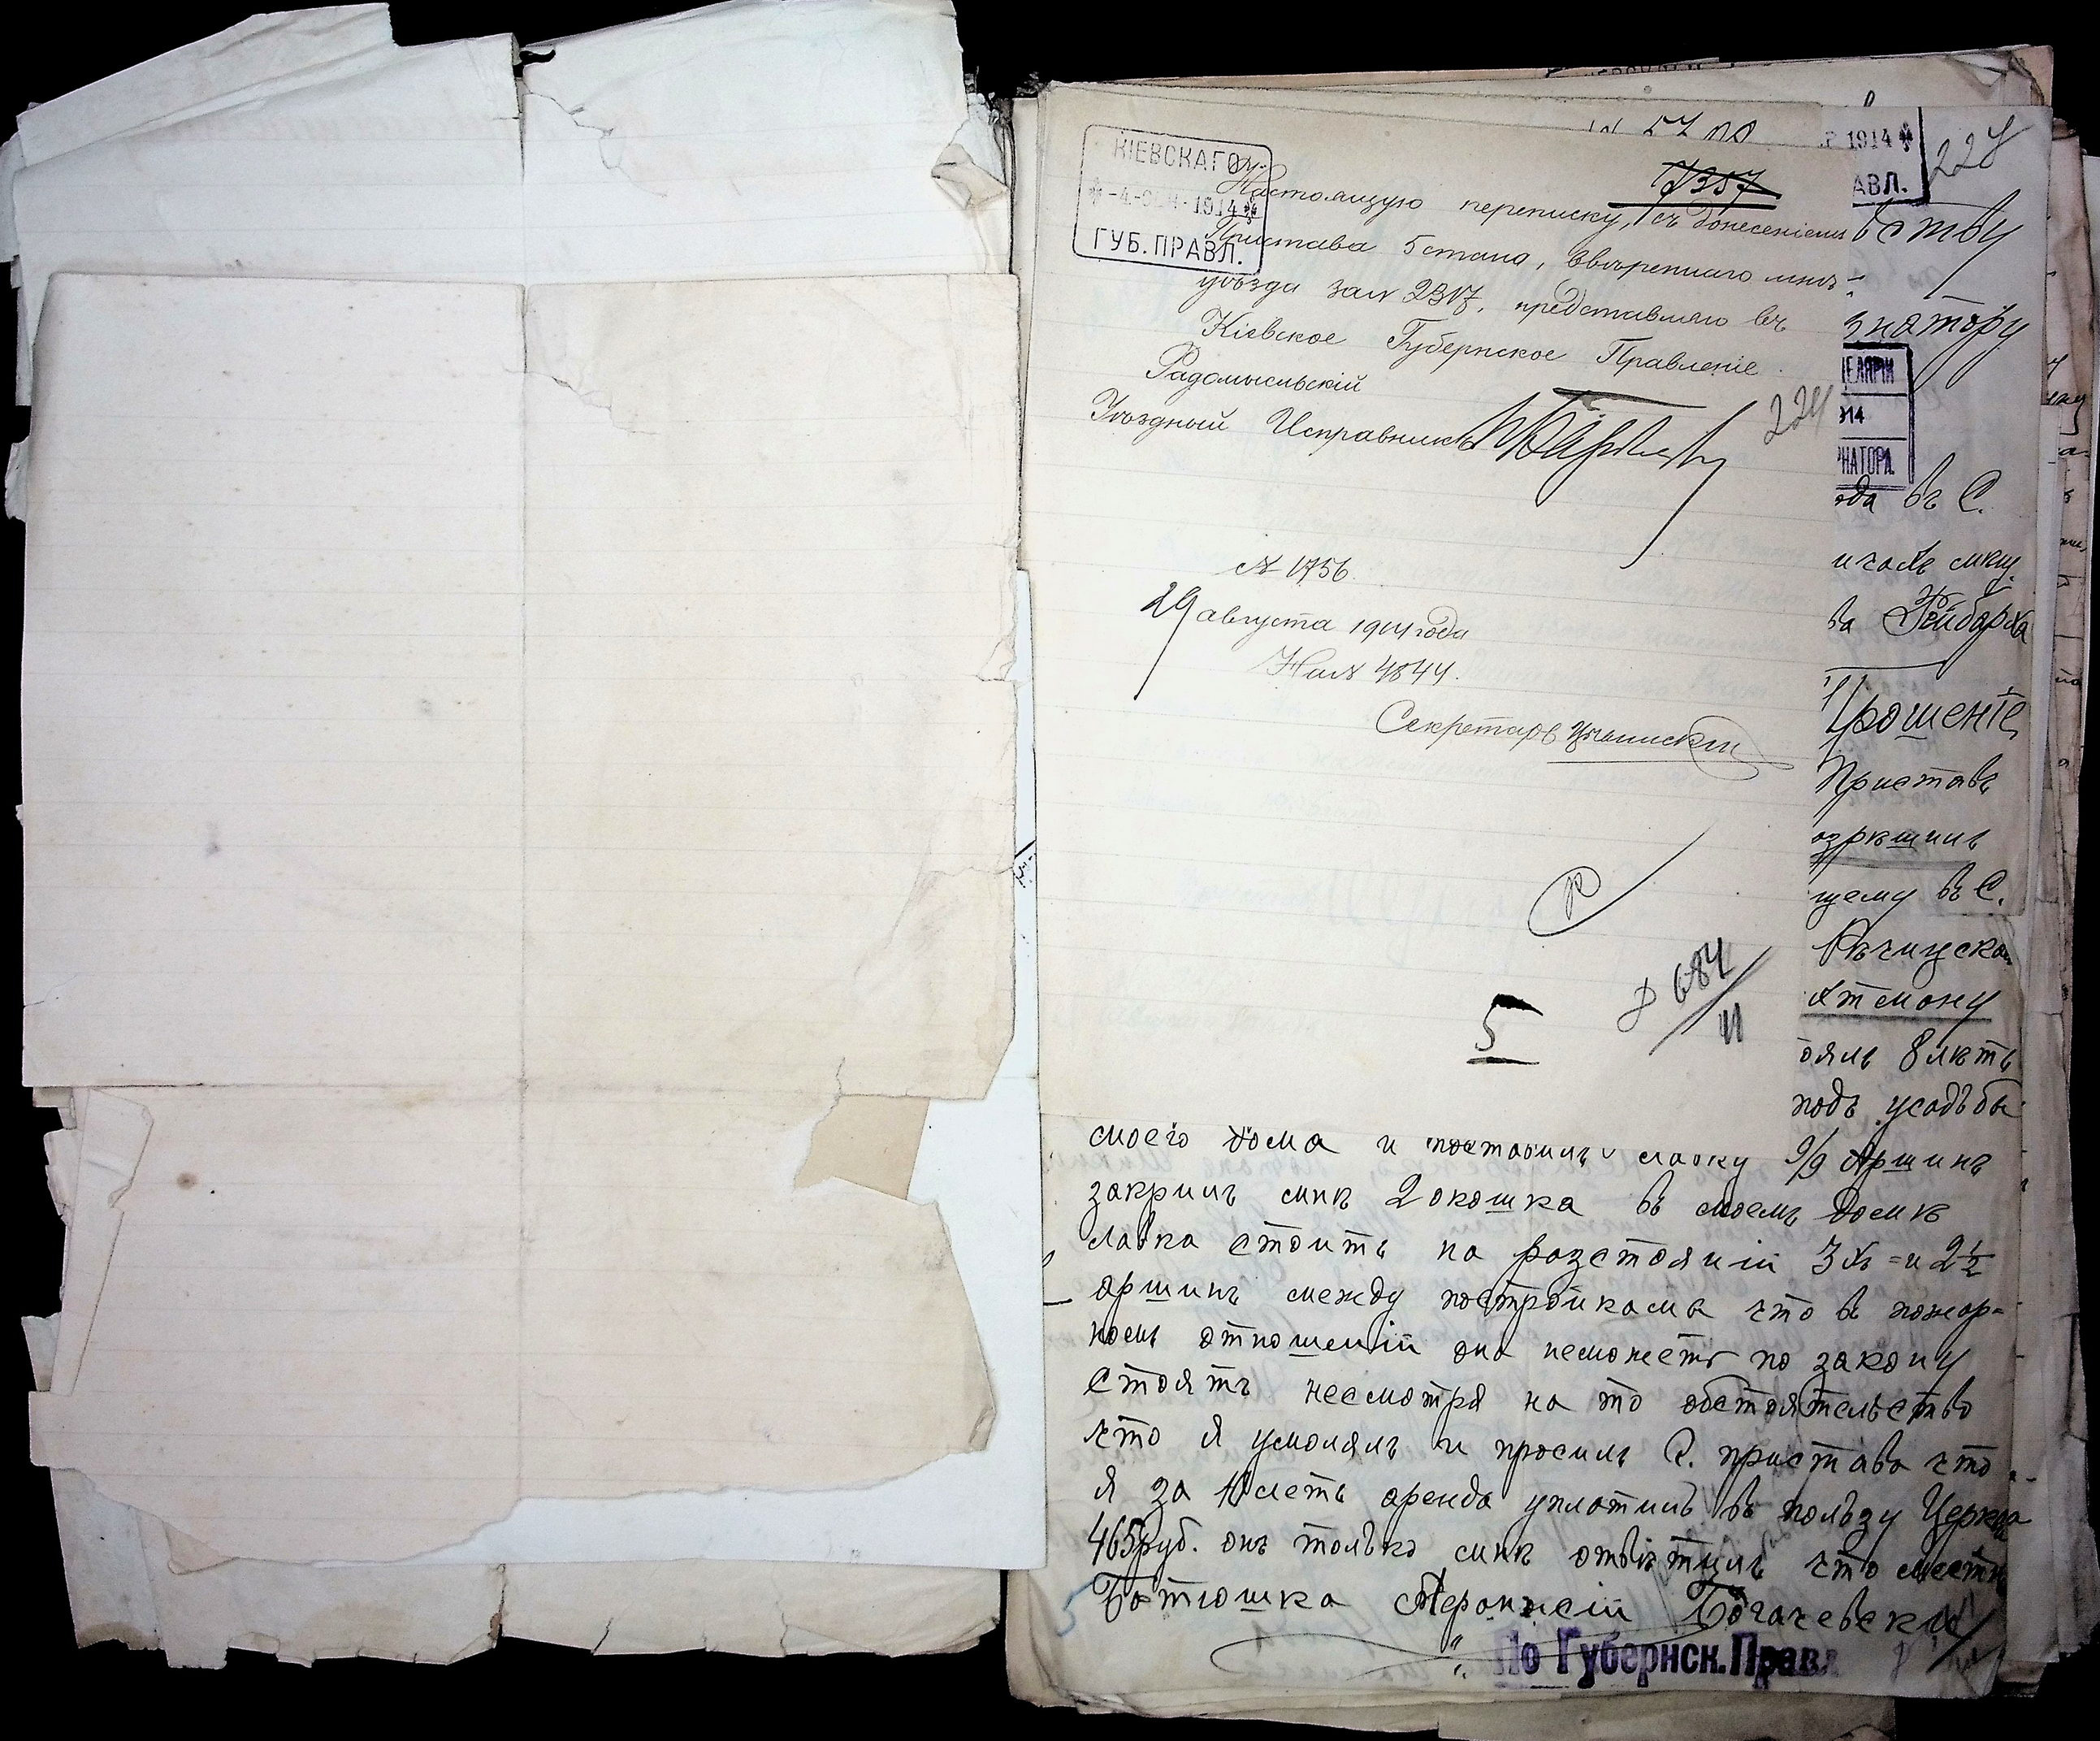 КІЕВСКАГО
-4.-СЕН-1914
ГУБ. ПРАВЛ.
1914
АВЛ.
228
7357
Настоящую переписку, съ донесеніемъ
Пристава 5 стана, ввѣреннаго мнѣ
уѣзда за № 2317, представляю въ
Кіевское Губернское Правленіе.
Радомысльскій
Уѣздный Исправникъ
224
№ 1756.
29 августа 1914 года
На № 4844.
Секретарь
5
684
11
ору
ЕЛЯРІИ
914
НАТОРА.
ода въ С.
ва Рейбарха
Прошеніе
Приставъ
щему въ С.
оялъ 8 лѣтъ
подъ усадьбы
моего дома и поставилъ лавку 9/9 Аршинъ
закрилъ мнѣ 2 окошка въ моемъ домѣ
лавка стоитъ на разстояніи 3х = и 2½
аршинъ между постройками что въ пожар-
номъ отношеніи она неможетъ по закону
стоятъ несмотря на то обстоятельство
что я умолялъ и просилъ Г. пристава что
я за летъ аренда уплотилъ въ пользу Церкви
465 руб. онъ только мнѣ отвѣтилъ что местн
Батюшка Богачевски
По Губернск. Правл